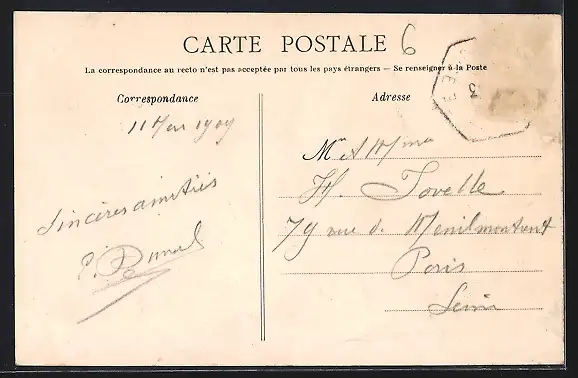 CARTE POSTALE
6
La correspondance au recto n'est pas acceptée par tous les pays étrangers — Se renseigner à la Poste
Correspondance
Adresse
11 1909
Sincères amitiés
Mr et Mme
H. Tovelle
79 rue d. Ménilmontant
Paris
Seine